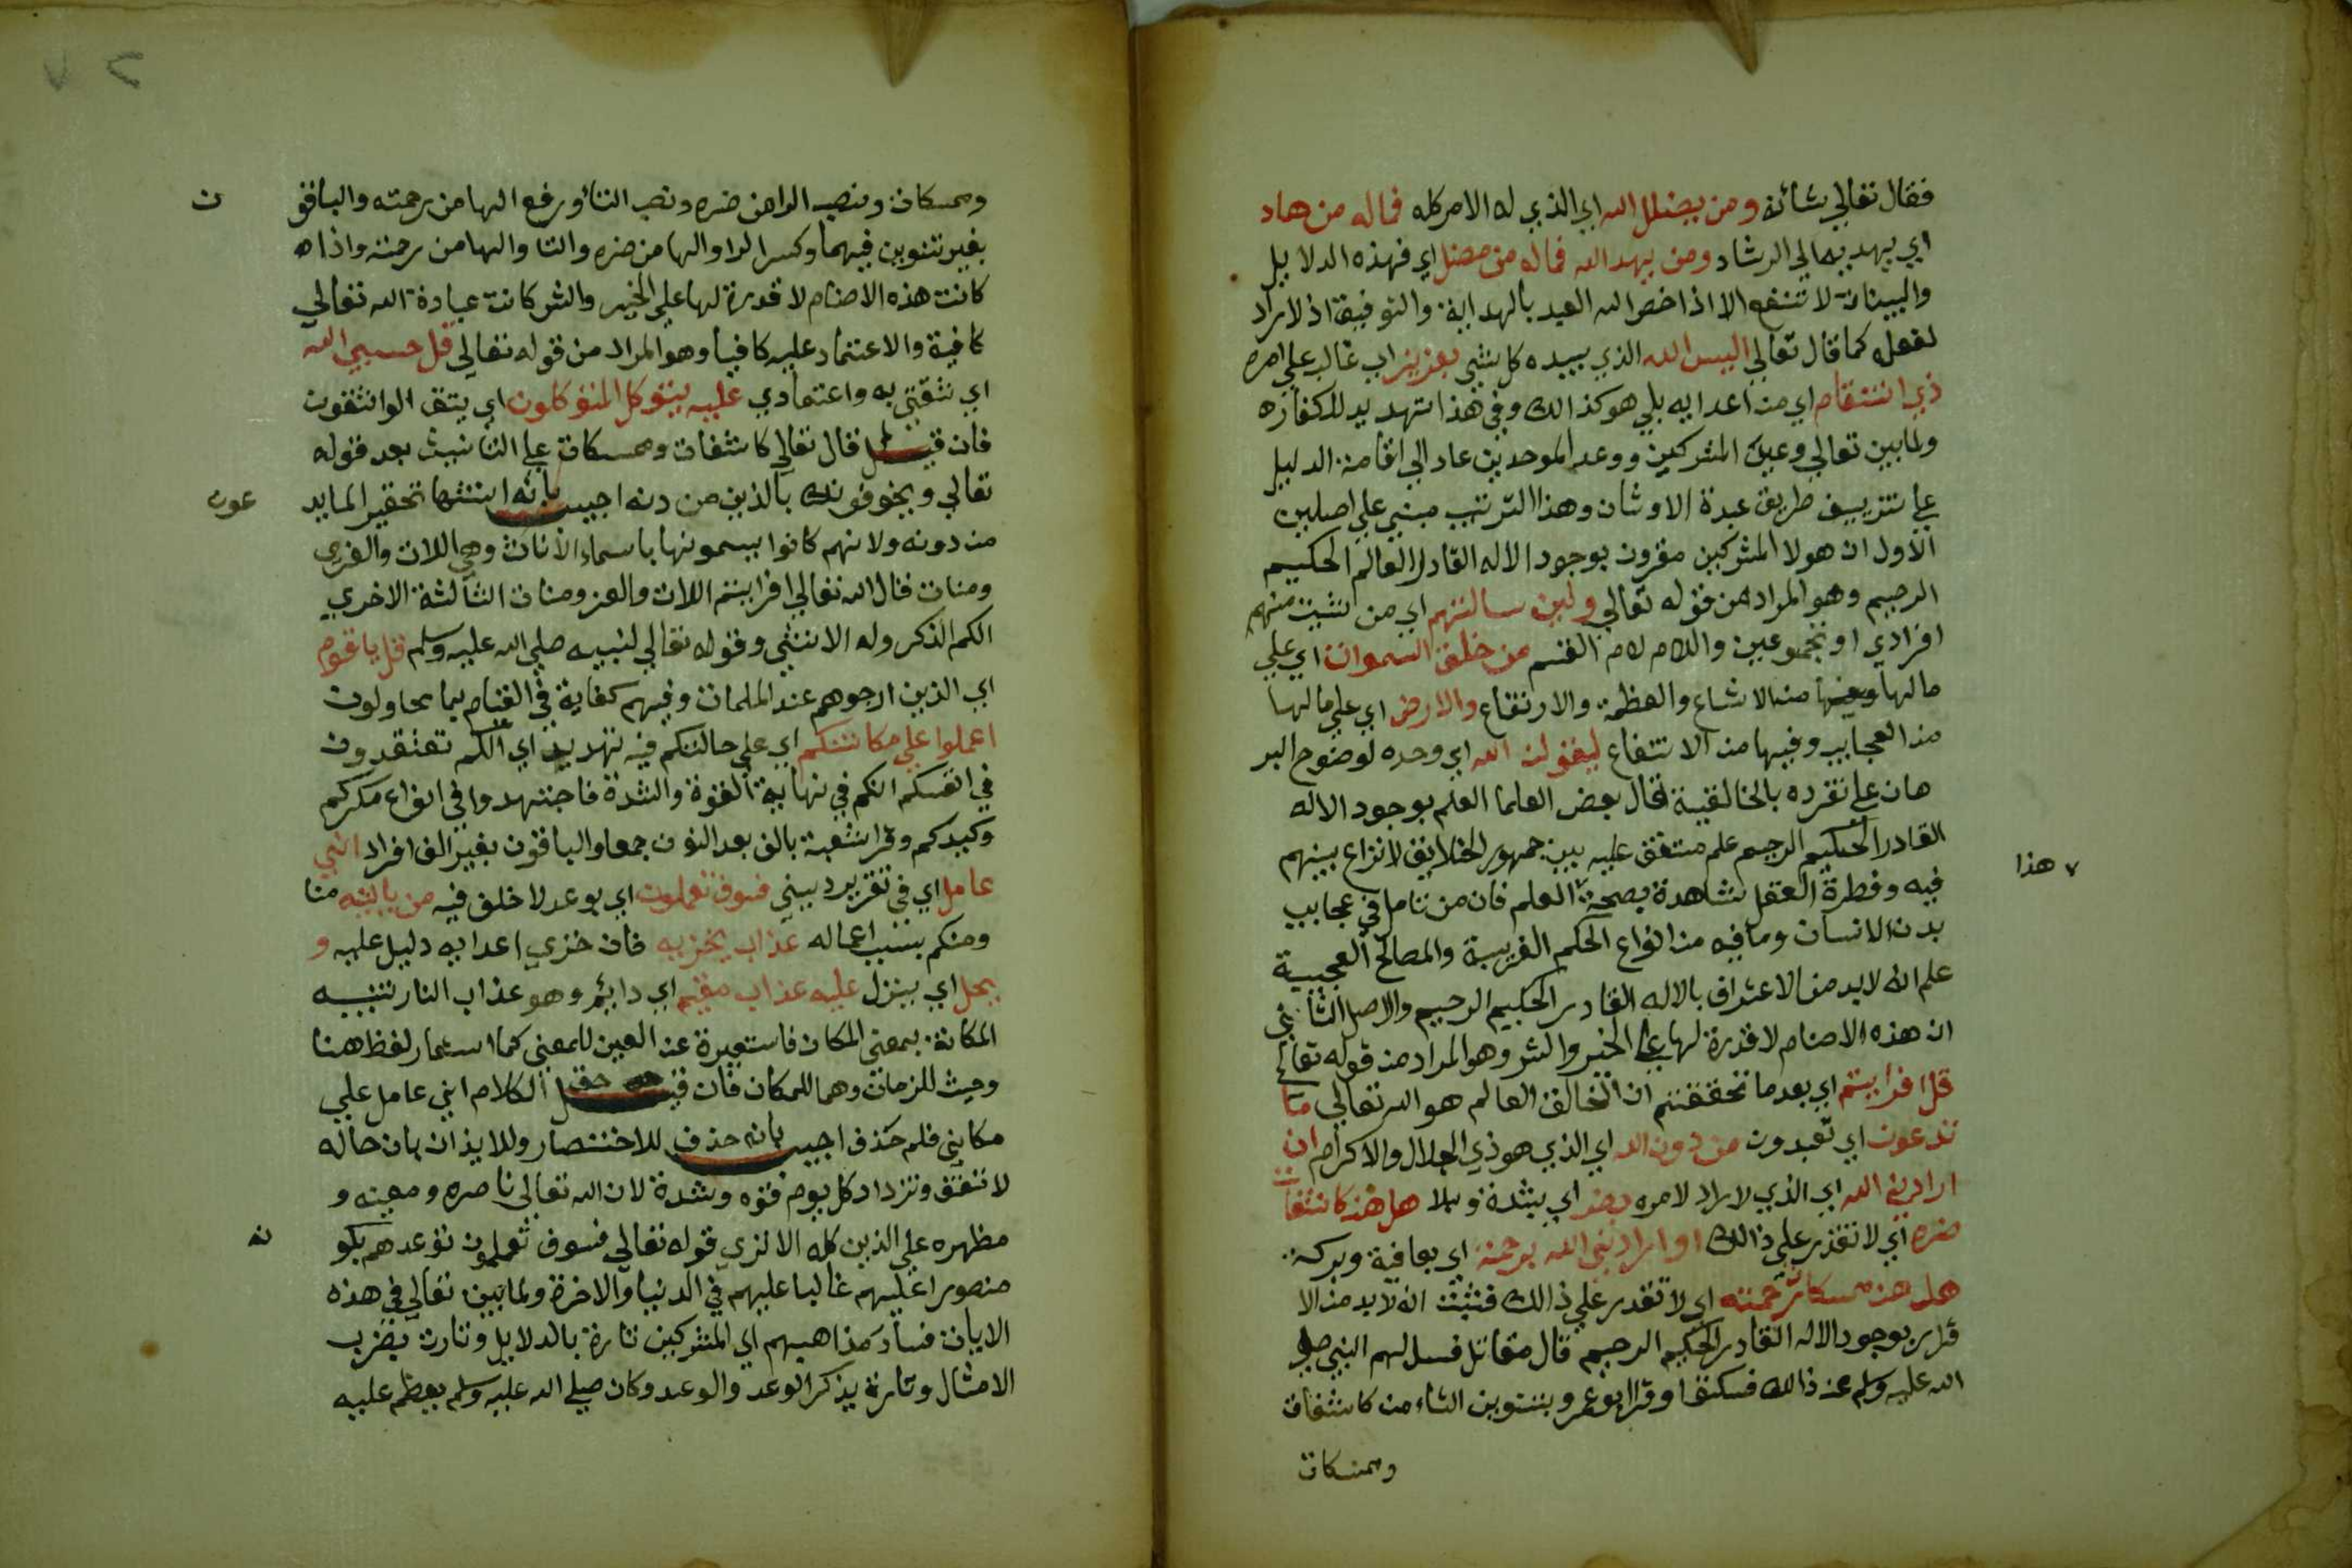 فقال تعالي شأنه ومن يضلل الله اي الذي له الامر كله فماله من هاد
اي يهديه الي الرشاد ومن يهد الله فماله من مضل اي فهذه الدلايل
والبينات لا تنفع الا اذا خص الله العبد بالهداية والتوفيق اذ لا راد
لفعله كما قال تعالي اليس الله الذي بيده كل شي بعزيز اي غالب علي امره
ذي انتقام اي من اعدايه بلي هو كذالك وفي هذا تهديد للكفاره
ولما بين تعالي وعيد المشركين ووعد الموحدين عاد الي اقامة الدليل
علي تزييف طريق عبدة الاوثان وهذا الترتيب مبني علي اصلين
الاول ان هولا المشركين مقرون بوجود الاله القادر العالم الحكيم
الرحيم وهو المراد من قوله تعالي ولين سالتهم اي من شيت منهم
افرادي او مجموعين واللام لام القسم من خلق السموات اي علي
مالها من الاتساع والعظمة والارتفاع والارض اي علي مالها
من العجايب وفيها من الانتفاع ليقولن الله اي وحده لوضوح البر
هان علي تفرده بالخالقية قال بعض العلما العلم بوجود الاله
القادر الحكيم الرحيم علم متفق عليه بين جمهور الخلايق لا نزاع بينهم
فيه وفطرة العقل شاهدة بصحة العلم فان من تامل في عجايب
٧ هذا
بدن الانسان وما فيه من انواع الحكم الغريبة والمصالح العجيبة
علم انه لا بد من الاعتراف بالاله القادر الحكيم الرحيم والاصل الثاني
ان هذه الاصنام لا قدرة لها علي الخير والشر وهو المراد من قوله تعالي
قل افرايتم اي بعد ما تحققتم ان الخالق العالم هو الله تعالي ما
تدعون اي تعبدون من دون الله اي الذي هو ذي الجلال والاكرام ان
ارادني الله اي الذي لا راد لامره بضر اي بشدة وبلا هل هن كاشفات
ضره اي لا تقدر علي ذالك او ارادني الله برحمة اي بعافية وبركة
هل هن ممسكات رحمته اي لا تقدر علي ذالك فثبت انه لا بد من الا
قرار بوجود الاله القادر الحكيم الرحيم قال مقاتل فسالهم النبي صلي
الله عليه وسلم عن ذالك فسكتوا وقرا ابو عمرو بتنوين التاء من كاشفات
وممسكات
وممسكات ونصب الرا من ضره ونصب التا ورفع الها من رحمته والباقو
ن
بغير تنوين فيهما وكسر الرا والها من ضره والتا والها من رحمته واذا
كانت هذه الاصنام لا قدرة لها علي الخير والشر كانت عبادة الله تعالي
كافية والاعتماد عليه كافيا وهو المراد من قوله تعالي قل حسبي الله
اي ثقتي به واعتمادي عليه يتوكل المتوكلون اي يثق الواثقون
فان قيل لم قال تعالي كاشفات وممسكات علي التانيث بعد قوله
تعالي ويخوفونك بالذين من دنه اجيب بانه انثها تحقيرا لما يد
عون
من دونه ولانهم كانوا يسمونها باسماء الاناث وهي اللات والعزي
ومنات قال الله تعالي افرايتم اللات والعز ومنات الثالثة الاخري
الكم الذكر وله الانثي وقوله تعالي لنبيه صلي الله عليه وسلم قل يا قوم
اي الذين ارجوهم عند الملمات وفيهم كفاية في القيام بما يحاولون
اعملوا علي مكانتكم اي علي حالتكم فيه تهديد اي انكم تعتقدون
في انفسكم انكم في نهاية القوة والشدة فاجتهدوا في انواع مكركم
وكيدكم وقرا شعبة بالف بعد النون جمعا والباقون بغير الف افراد اني
عامل اي في تقرير ديني فسوف تعلمون اي بوعد لا خلف فيه من ياتيه منا
ومنكم بسبب اعماله عذاب يخزيه فان خزي اعدايه دليل عليه و
يحل اي ينزل عليه عذاب مقيم اي دايم وهو عذاب النار تنبيه
المكانة بمعني المكان فاستعيرة عن العين للمعني كما استعار لفظ هنا
وحيث للزمان وهما للمكان فان قيل حق الكلام اني عامل علي
مكانتي فلم حذف اجيب بانه حذف للاختصار وللايذان بان حاله
لا تقف وتزداد كل يوم قوه وشدة لان الله تعالي ناصره ومعينه و
مظهره علي الذين كله الا تري قوله تعالي فسوف تعلمون توعدهم بكو
نه
منصورا عليهم غالبا عليهم في الدنيا والاخرة ولما بين تعالي في هذه
الايات فساد مذاهبهم اي المشركين تارة بالدلايل وتارت بضرب
الامثال وتارة بذكر الوعد والوعيد وكان صلي الله عليه وسلم يعظم عليه